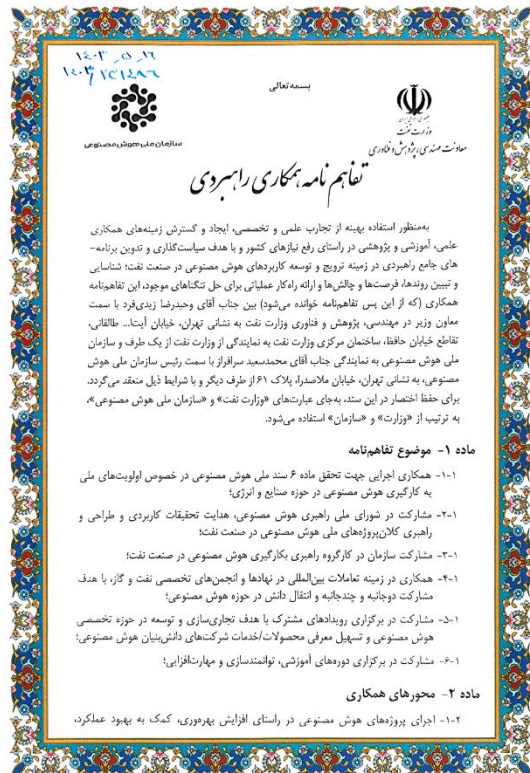 ۱۴۰۳-۵-۱۶
بسمه‌تعالی
سازمان ملی هوش مصنوعی
وزارت نفت
معاونت مهندسی، پژوهش و فناوری
تفاهم نامه همکاری راهبردی
به‌منظور استفاده بهینه از تجارب علمی و تخصصی، ایجاد و گسترش زمینه‌های همکاری
علمی، آموزشی و پژوهشی در راستای رفع نیازهای کشور و با هدف سیاست‌گذاری و تدوین برنامه-
های جامع راهبردی در زمینه ترویج و توسعه کاربردهای هوش مصنوعی در صنعت نفت؛ شناسایی
و تبیین روندها، فرصت‌ها و چالش‌ها و ارائه راه‌کار عملیاتی برای حل تنگناهای موجود، این تفاهم‌نامه
همکاری (که از این پس تفاهم‌نامه خوانده می‌شود) بین جناب آقای وحیدرضا زیدی‌فرد با سمت
معاون وزیر در مهندسی، پژوهش و فناوری وزارت نفت به نشانی تهران، خیابان آیت‌ا... طالقانی،
تقاطع خیابان حافظ، ساختمان مرکزی وزارت نفت به نمایندگی از وزارت نفت از یک طرف و سازمان
ملی هوش مصنوعی به نمایندگی جناب آقای محمدسعید سرافراز با سمت رئیس سازمان ملی هوش
مصنوعی، به نشانی تهران، خیابان ملاصدرا، پلاک ۶۱ از طرف دیگر و با شرایط ذیل منعقد می‌گردد.
برای حفظ اختصار در این سند، به‌جای عبارت‌های «وزارت نفت» و «سازمان ملی هوش مصنوعی»،
به ترتیب از «وزارت» و «سازمان» استفاده می‌شود.
ماده ۱- موضوع تفاهم‌نامه
۱-۱- همکاری اجرایی جهت تحقق ماده ۶ سند ملی هوش مصنوعی در خصوص اولویت‌های ملی
به کارگیری هوش مصنوعی در حوزه صنایع و انرژی؛
۱-۲- مشارکت در شورای ملی راهبری هوش مصنوعی، هدایت تحقیقات کاربردی و طراحی و
راهبری کلان‌پروژه‌های ملی هوش مصنوعی در صنعت نفت؛
۱-۳- مشارکت سازمان در کارگروه راهبری بکارگیری هوش مصنوعی در صنعت نفت؛
۱-۴- همکاری در زمینه تعاملات بین‌المللی در نهادها و انجمن‌های تخصصی نفت و گاز، با هدف
مشارکت دوجانبه و چندجانبه و انتقال دانش در حوزه هوش مصنوعی؛
۱-۵- مشارکت در برگزاری رویدادهای مشترک با هدف تجاری‌سازی و توسعه در حوزه تخصصی
هوش مصنوعی و تسهیل معرفی محصولات/خدمات شرکت‌های دانش‌بنیان هوش مصنوعی؛
۱-۶- مشارکت در برگزاری دوره‌های آموزشی، توانمندسازی و مهارت‌افزایی؛
ماده ۲- محورهای همکاری
۲-۱- اجرای پروژه‌های هوش مصنوعی در راستای افزایش بهره‌وری، کمک به بهبود عملکرد،